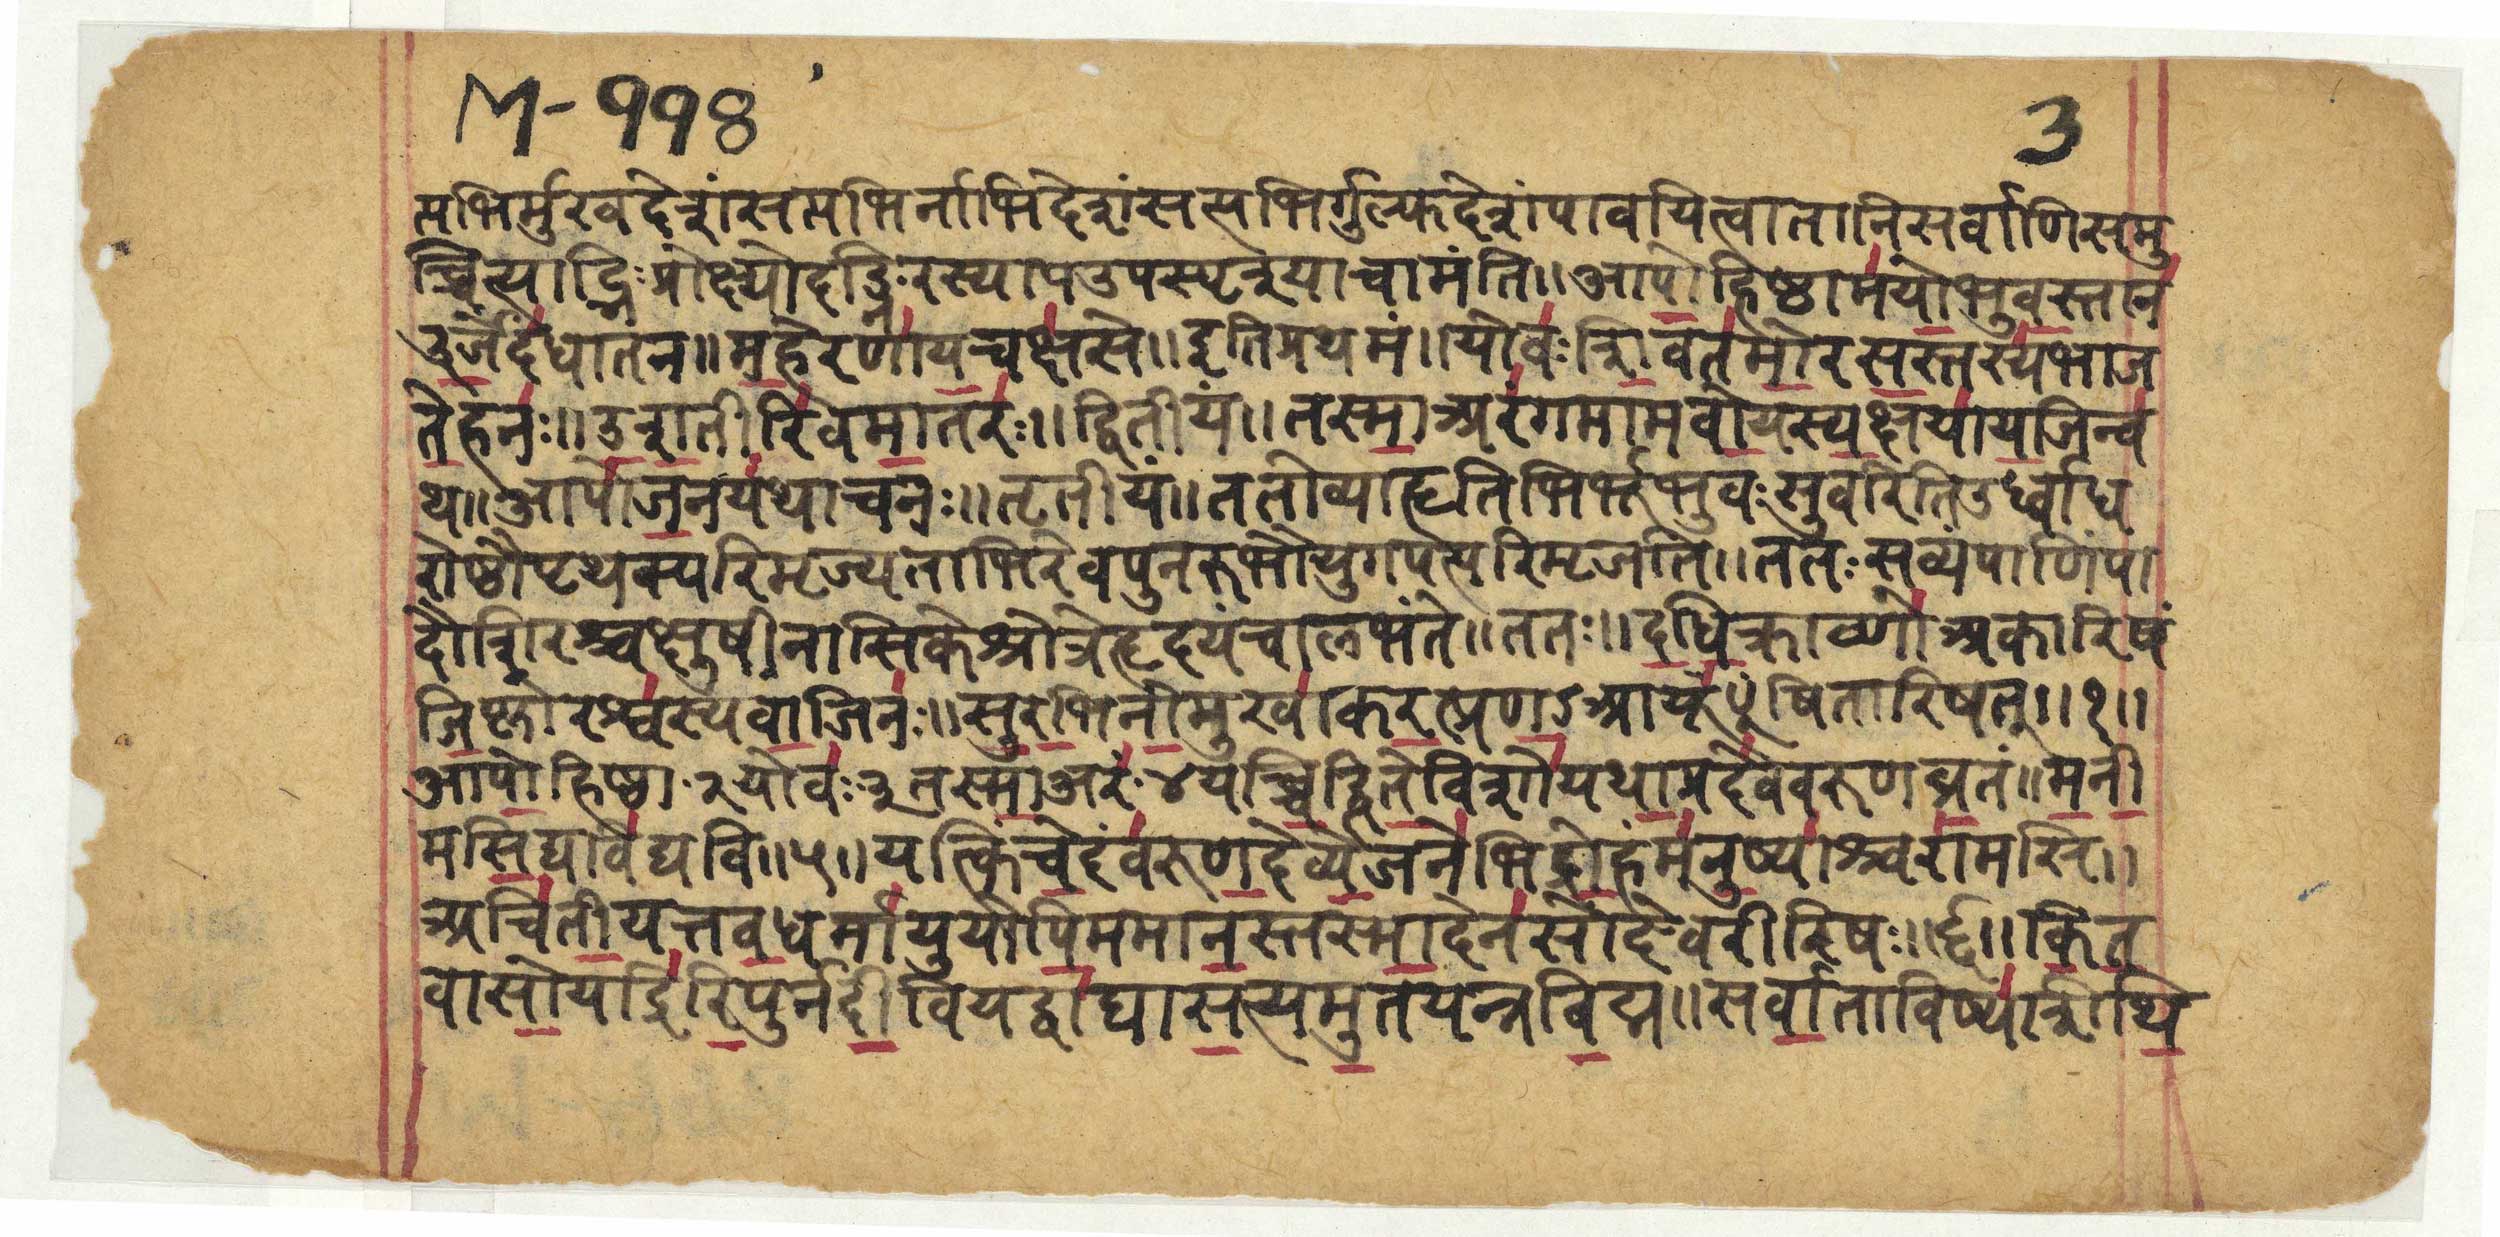 M-११४ 3
प्तभिर्मुखदेशंसप्तभिर्नाभिदेशंसप्तभिर्गुल्फदेशंपावयित्वातानिसर्वाणिसमु
च्चित्याद्भिःप्रोक्ष्योदद्भिरस्यापउपस्पृश्याचामंति॥आपोहिष्ठामयोभुवस्तान
ऊर्जेदधातन॥महेरणायचक्षसे॥इतिप्रथमं॥योवःशिवतमोरसस्तस्यभाज
तेहनः॥उशतीरिवमातरः॥द्वितीयं॥तस्माअरंगमामवोयस्यक्षयायजिन्व
थ॥आपोजनयथाचनः॥तृतीयं॥ततोव्याहृतिभिर्भूभुवःसुवरितिउर्ध्वाध
रोष्ठौपृथक्परिमृज्यताभिरेवपुनरुभौयुगपत्परिमृजति॥ततःसव्यंपाणिंपा
दौशिरश्चक्षुषीनासिकेश्रोत्रेहृदयंचालभंते॥ततः॥दधिक्राव्णोअकारिषं
जिष्णोरश्वस्यवाजिनः॥सुरभिनोमुखाकरत्प्रणऽआयूꣳषितारिषत्॥१॥
आपोहिष्ठा२योवः३तस्माअरं४यच्चिद्धितेविशोयथाप्रदेववरुणव्रतं॥मनी
मसिद्यविद्यवि॥५॥यत्किंचेदंवरुणदैव्येजनेभिद्रोहंमनुष्याश्चरामसि॥
अचितीयत्तवधर्मायुयोपिममानस्तस्मादेनसोदेवरीरिषः॥६॥कित
वासोयद्रिरिपुर्नदीवियद्वाघासत्यमुतयन्नविद्म॥सर्वाताविष्यशिथि